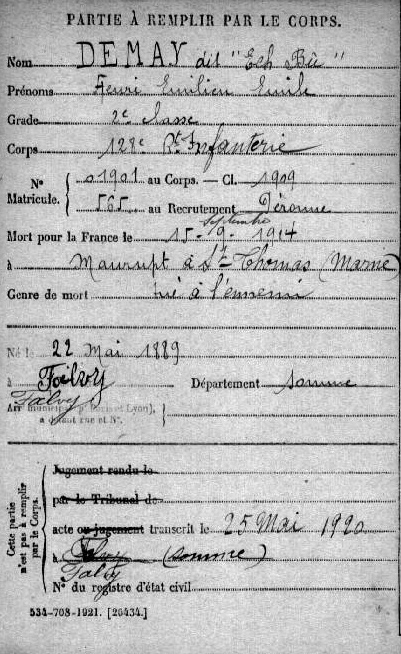 PARTIE À REMPLIR PAR LE CORPS.
Nom DEMAY dit "Ech Bu"
Prénoms Henri Emilien Emile
Grade 2e classe
Corps 128e Rt Infanterie
No Matricule. { 01901 au Corps. — Cl. 1909
565 au Recrutement Péronne
Septembre
Mort pour la France le 15-9-1914
à Maurupt à St Thomas (Marne)
Genre de mort tué à l'ennemi
Né le 22 Mai 1889
à Falvy Département Somme
Falvy
Arr municipal (p. Paris et Lyon),
à défaut rue et No.
Cette partie n'est pas à remplir par le Corps.
Jugement rendu le
par le Tribunal de
acte ou jugement transcrit le 25 Mai 1920
à (Somme)
Falvy
No du registre d'état civil
534-708-1921. [26434.]